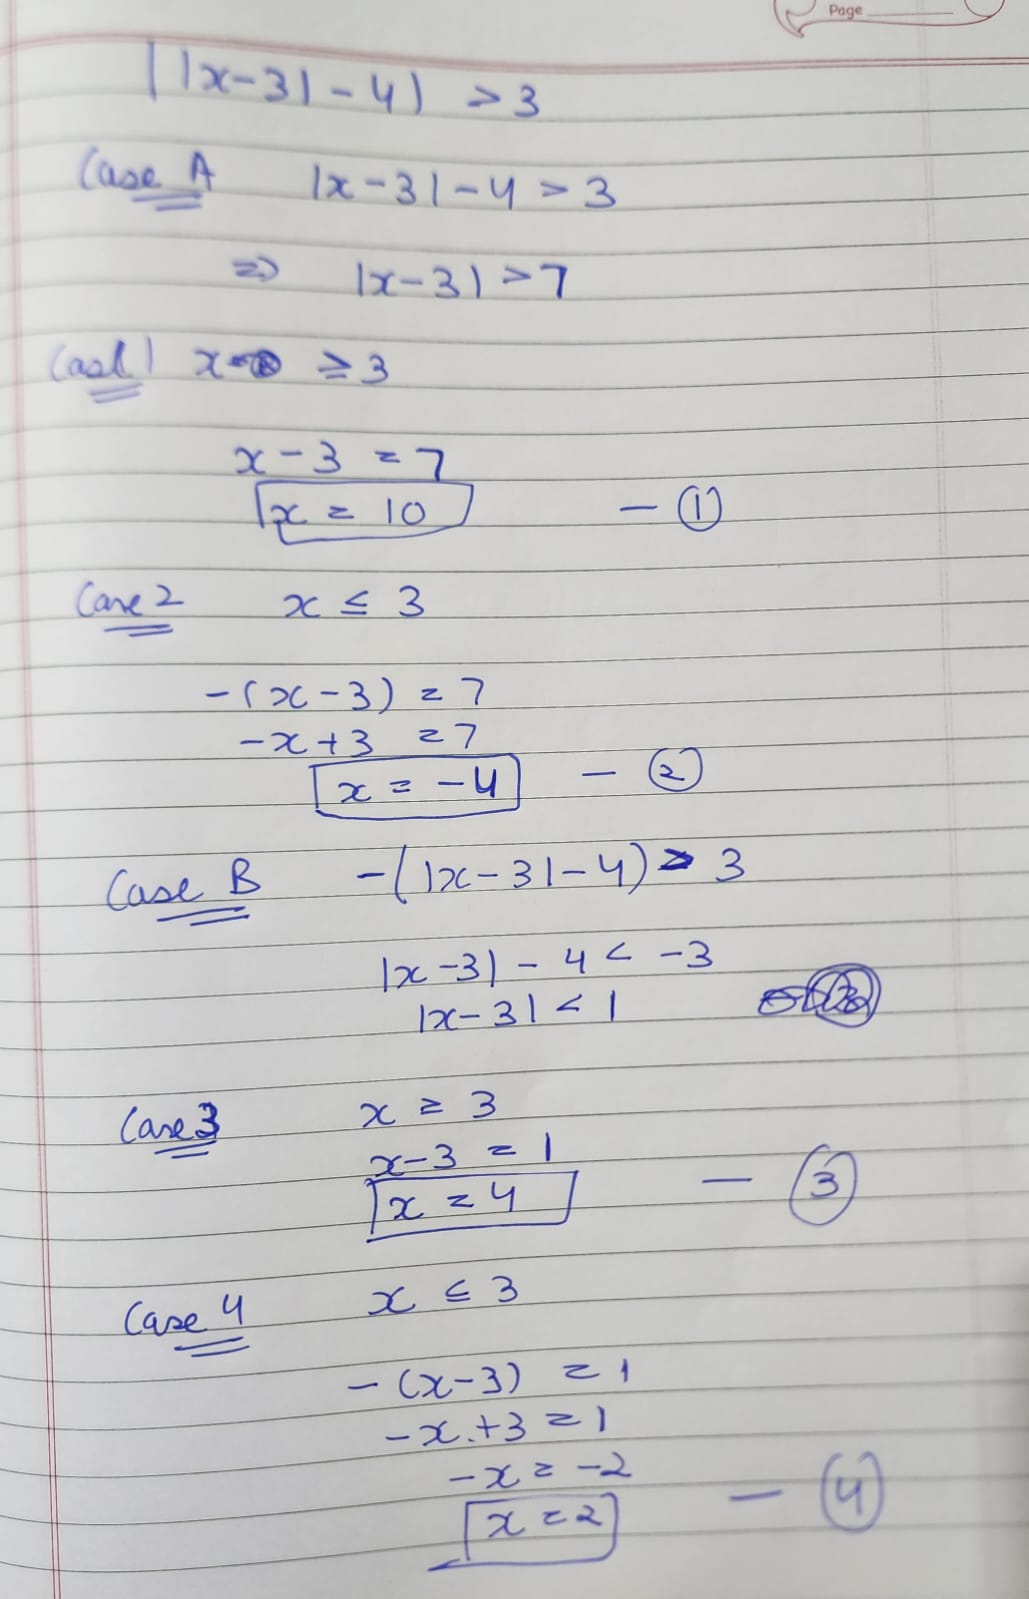 Page
||x-3|-4| > 3
Case A |x-3|-4 > 3
=> |x-3| > 7
Case 1 x ≥ 3
x-3 = 7
x = 10 - ①
Case 2 x ≤ 3
-(x-3) = 7
-x+3 = 7
x = -4 - ②
Case B -(|x-3|-4) > 3
|x-3| - 4 < -3
|x-3| < 1
Case 3 x ≥ 3
x-3 = 1
x = 4 - ③
Case 4 x ≤ 3
-(x-3) = 1
-x+3 = 1
-x = -2
x = 2 - ④